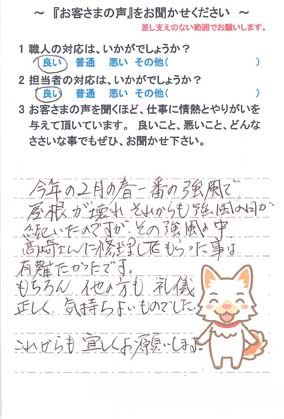 ～ 『お客さまの声』をお聞かせください ～
差し支えのない範囲でお願いします。
1 職人の対応は、いかがでしょうか？
良い 普通 悪い その他( )
2 担当者の対応は、いかがでしょうか？
良い 普通 悪い その他( )
3 お客さまの声を聞くほど、仕事に情熱とやりがいを
与えて頂いています。 良いこと、悪いこと、どんな
ささいな事でもぜひ、お聞かせ下さい。
今年の2月の春一番の強風で
屋根が壊れ それからも強風の日が
続いたのですが、その強風の中
高崎さんに修理してもらった事は
有難たかったです。
もちろん 他の方も 礼儀
正しく 気持ちよいものでした。
これからも 宜しくお願いします。